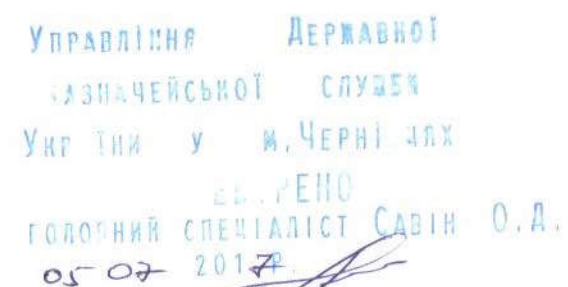 Управління Державної
Казначейської служби
України у м.Чернівцях
головний спеціаліст Савін О.А.
05 07 2017р.